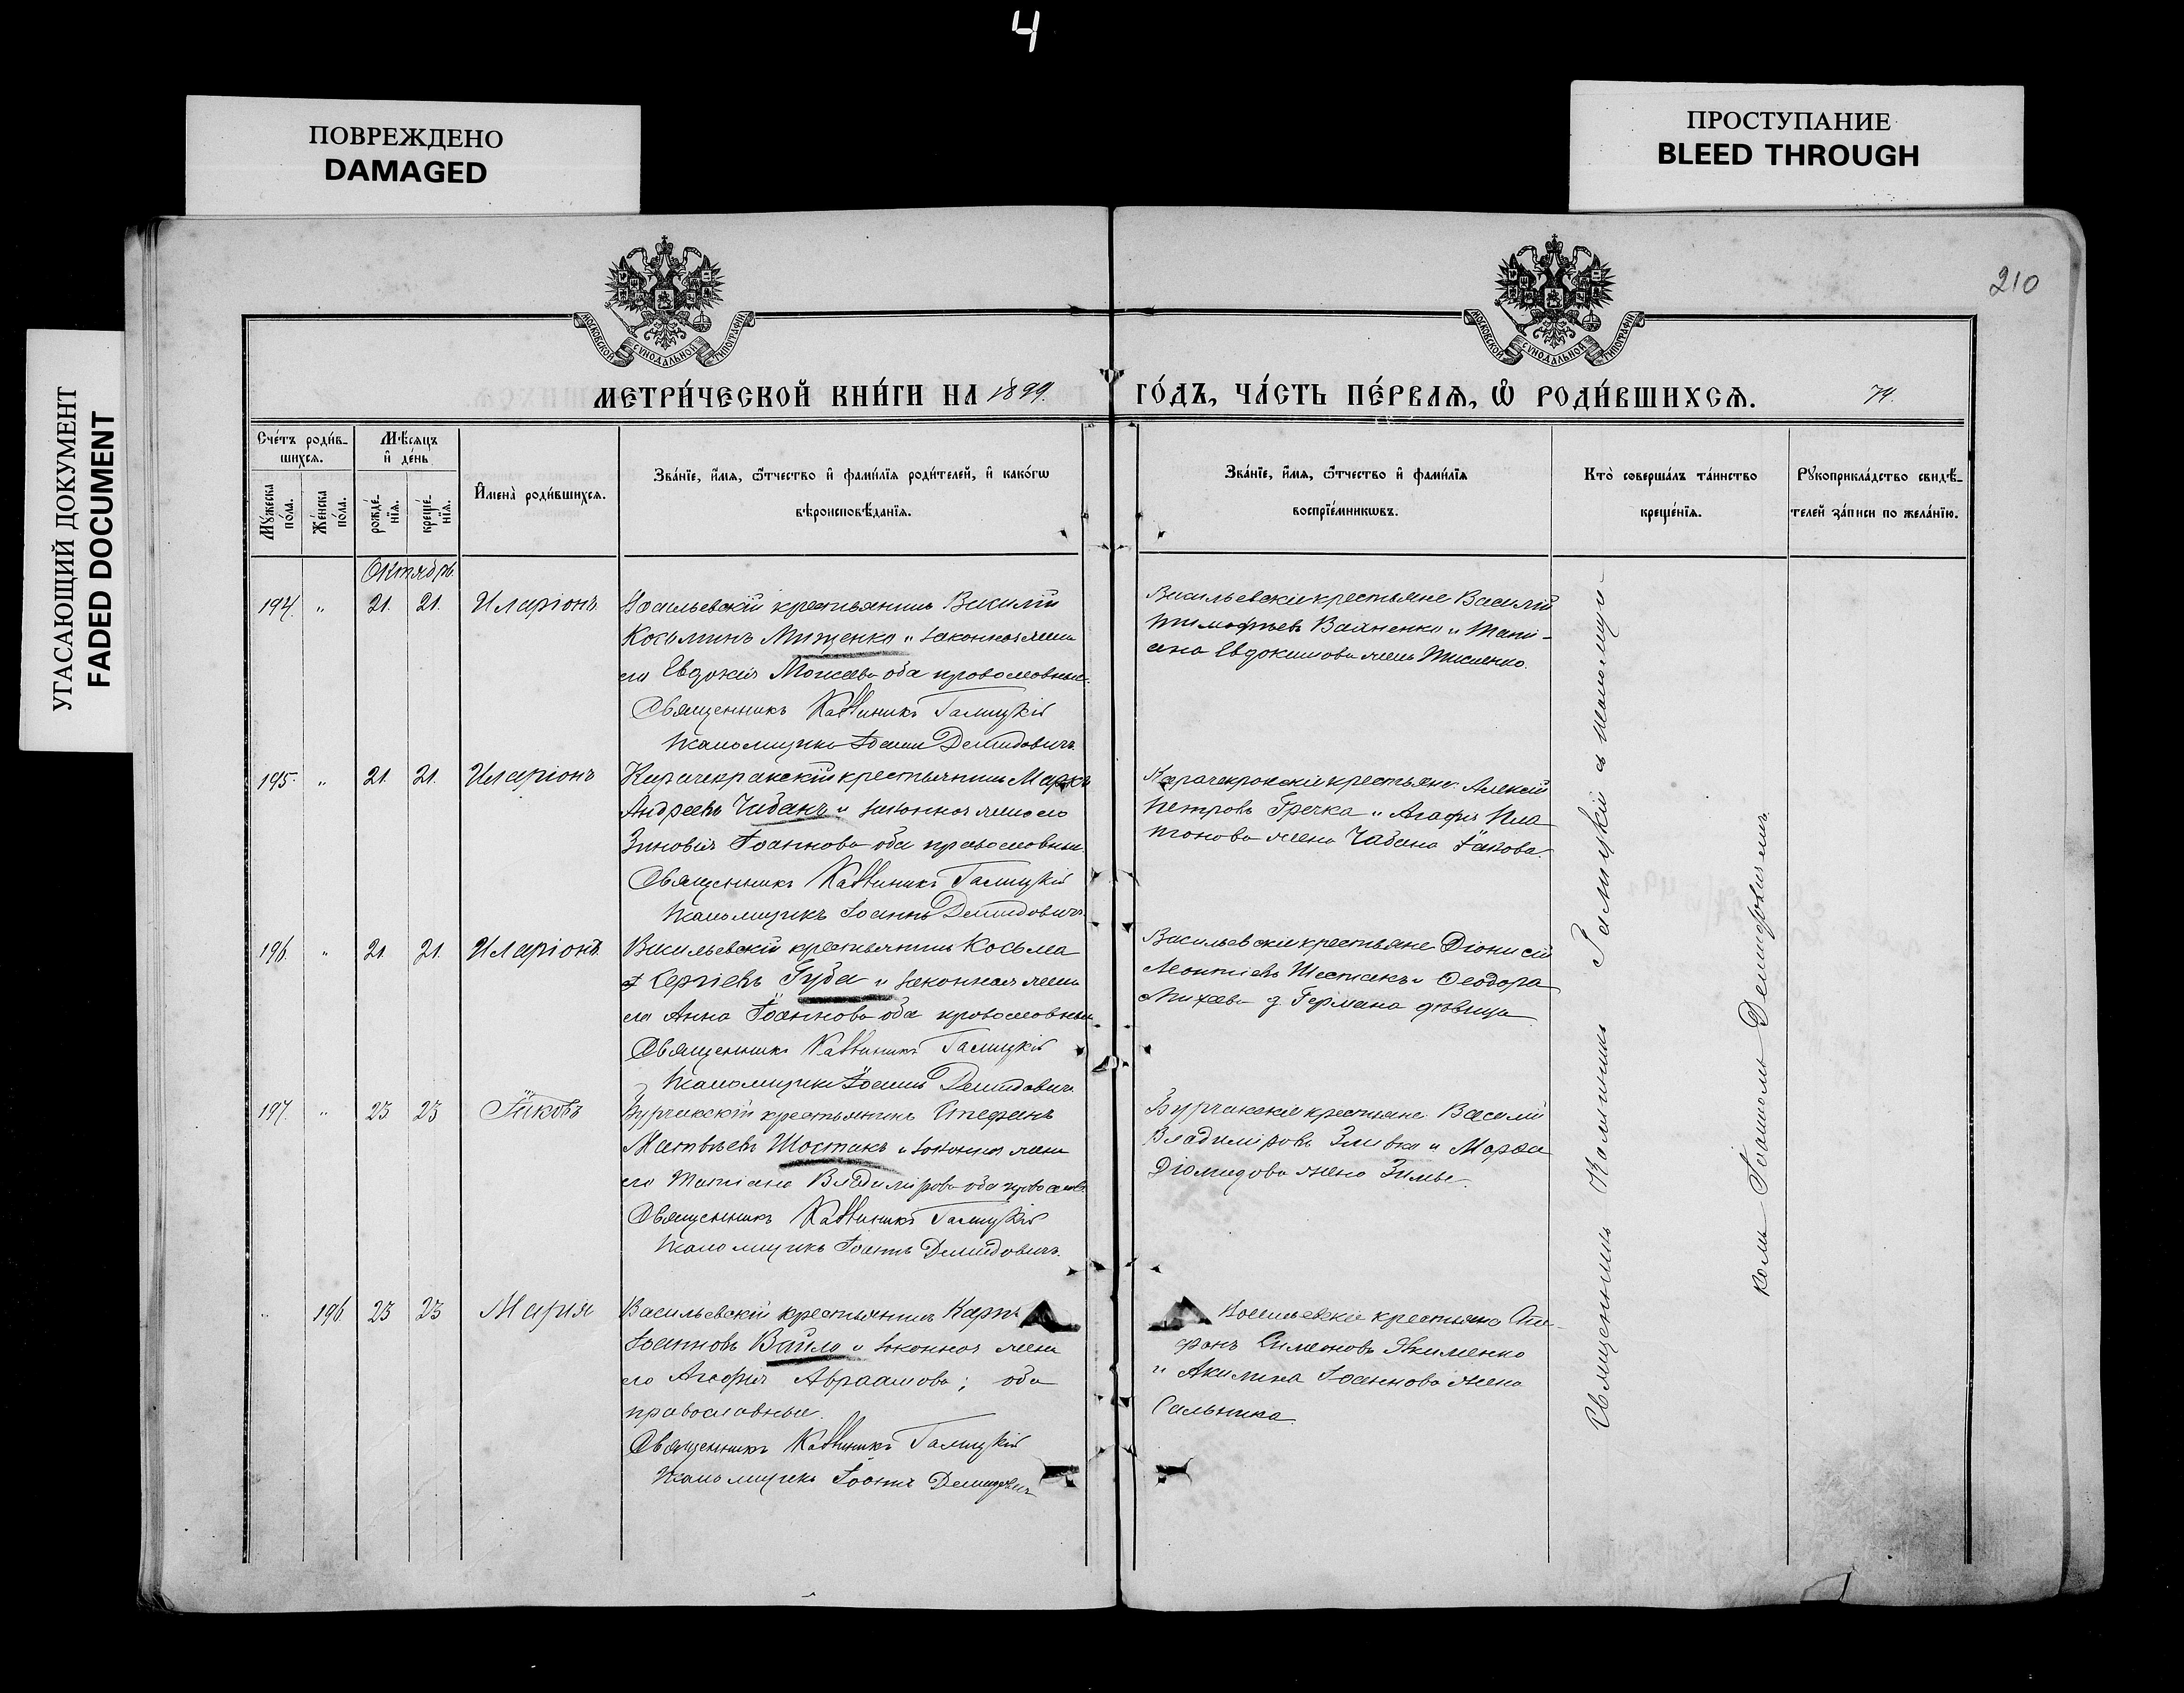 4
ПОВРЕЖДЕНО
DAMAGED
ПРОСТУПАНИЕ
BLEED THROUGH
УГАСАЮЩИЙ ДОКУМЕНТ
FADED DOCUMENT
210
МОСКОВСКОЙ СѴНОДАЛЬНОЙ ТИПОГРАФІИ
МОСКОВСКОЙ СѴНОДАЛЬНОЙ ТИПОГРАФІИ
МЕТРИ́ЧЕСКОЙ КНИ́ГИ НА 1899.
ГО́ДЪ, ЧА́СТЬ ПЕ́РВАѦ, Ѡ҆ РОДИ́ВШИХСѦ. 74.
Сче́тъ роди́в-
шихсѧ.
Мꙋ́жеска по́ла.
Же́нска по́ла.
Мѣ́сѧцъ
и҆ де́нь
рожде́-
нїѧ.
креще́-
нїѧ.
И҆мена̀ роди́вшихсѧ.
Зва́нїе, и҆́мѧ, ѻ҆́тчество и҆ фами́лїѧ роди́телей, и҆ како́гѡ
вѣроисповѣ́данїѧ.
Зва́нїе, и҆́мѧ, ѻ҆́тчество и҆ фами́лїѧ
воспрїе́мникѡвъ.
Кто̀ соверша́лъ та́инство
креще́нїѧ.
Рꙋкоприкла́дство свидѣ́-
телей за́писи по жела́нїю.
Октябрь
194. " 21. 21. Иларіонъ
Васильевскій крестьянинъ Василій
Косминъ Мищенко и законная жена
его Евдокія Моисеева оба православные.
Священникъ Каллиникъ Галицкій
Псаломщикъ Іоаннъ Демидовичъ
Васильевскіе крестьяне Василій
Тимофѣевъ Вайненко и Таті-
ана Евдокимова жена
195. " 21. 21. Иларіонъ
Карачекракскій крестьянинъ Маркъ
Андреевъ Чабанъ и законная жена его
Зиновія Іоаннова оба православные
Священникъ Каллиникъ Галицкій
Псаломщикъ Іоаннъ Демидовичъ
Карачекракскіе крестьяне Алексій
Петровъ Гречка и Агафія Пла-
тонова жена Чабана Іакова.
196. " 21. 21. Иларіонъ
Васильевскій крестьянинъ Косьма
Сергіевъ Губа и законная жена
его Анна Іоаннова оба православные
Священникъ Каллиникъ Галицкій
Псаломщикъ Іоаннъ Демидовичъ
Васильевскіе крестьяне Діонисій
Леонтіевъ Шестакъ и Ѳеодора
Михеева д. Германа дѣвица
197. " 23 23 Іаковъ
Бурчакскій крестьянинъ Стефанъ
Матвѣевъ Шостакъ и законная жена
его Татіана Владимірова оба православ.
Священникъ Каллиникъ Галицкій
Псаломщикъ Іоаннъ Демидовичъ.
Бурчакскіе крестьяне Василій
Владиміровъ Зливка и Марѳа
Діомидова жена Зимы.
" 196 23 23 Марія
Васильевскій крестьянинъ Карпъ
Іоанновъ Вайло и законная жена
его Агафія Авраамова; оба
православные.
Священникъ Каллиникъ Галицкій
Псаломщикъ Іоаннъ Демидовичъ
Васильевскіе крестьяне Сте-
фанъ Симеоновъ Якименко
и Акилина Іоаннова жена
Сальника.
Священникъ Каллиникъ Галицкій съ псаломщи-
комъ Іоанномъ Демидовичемъ